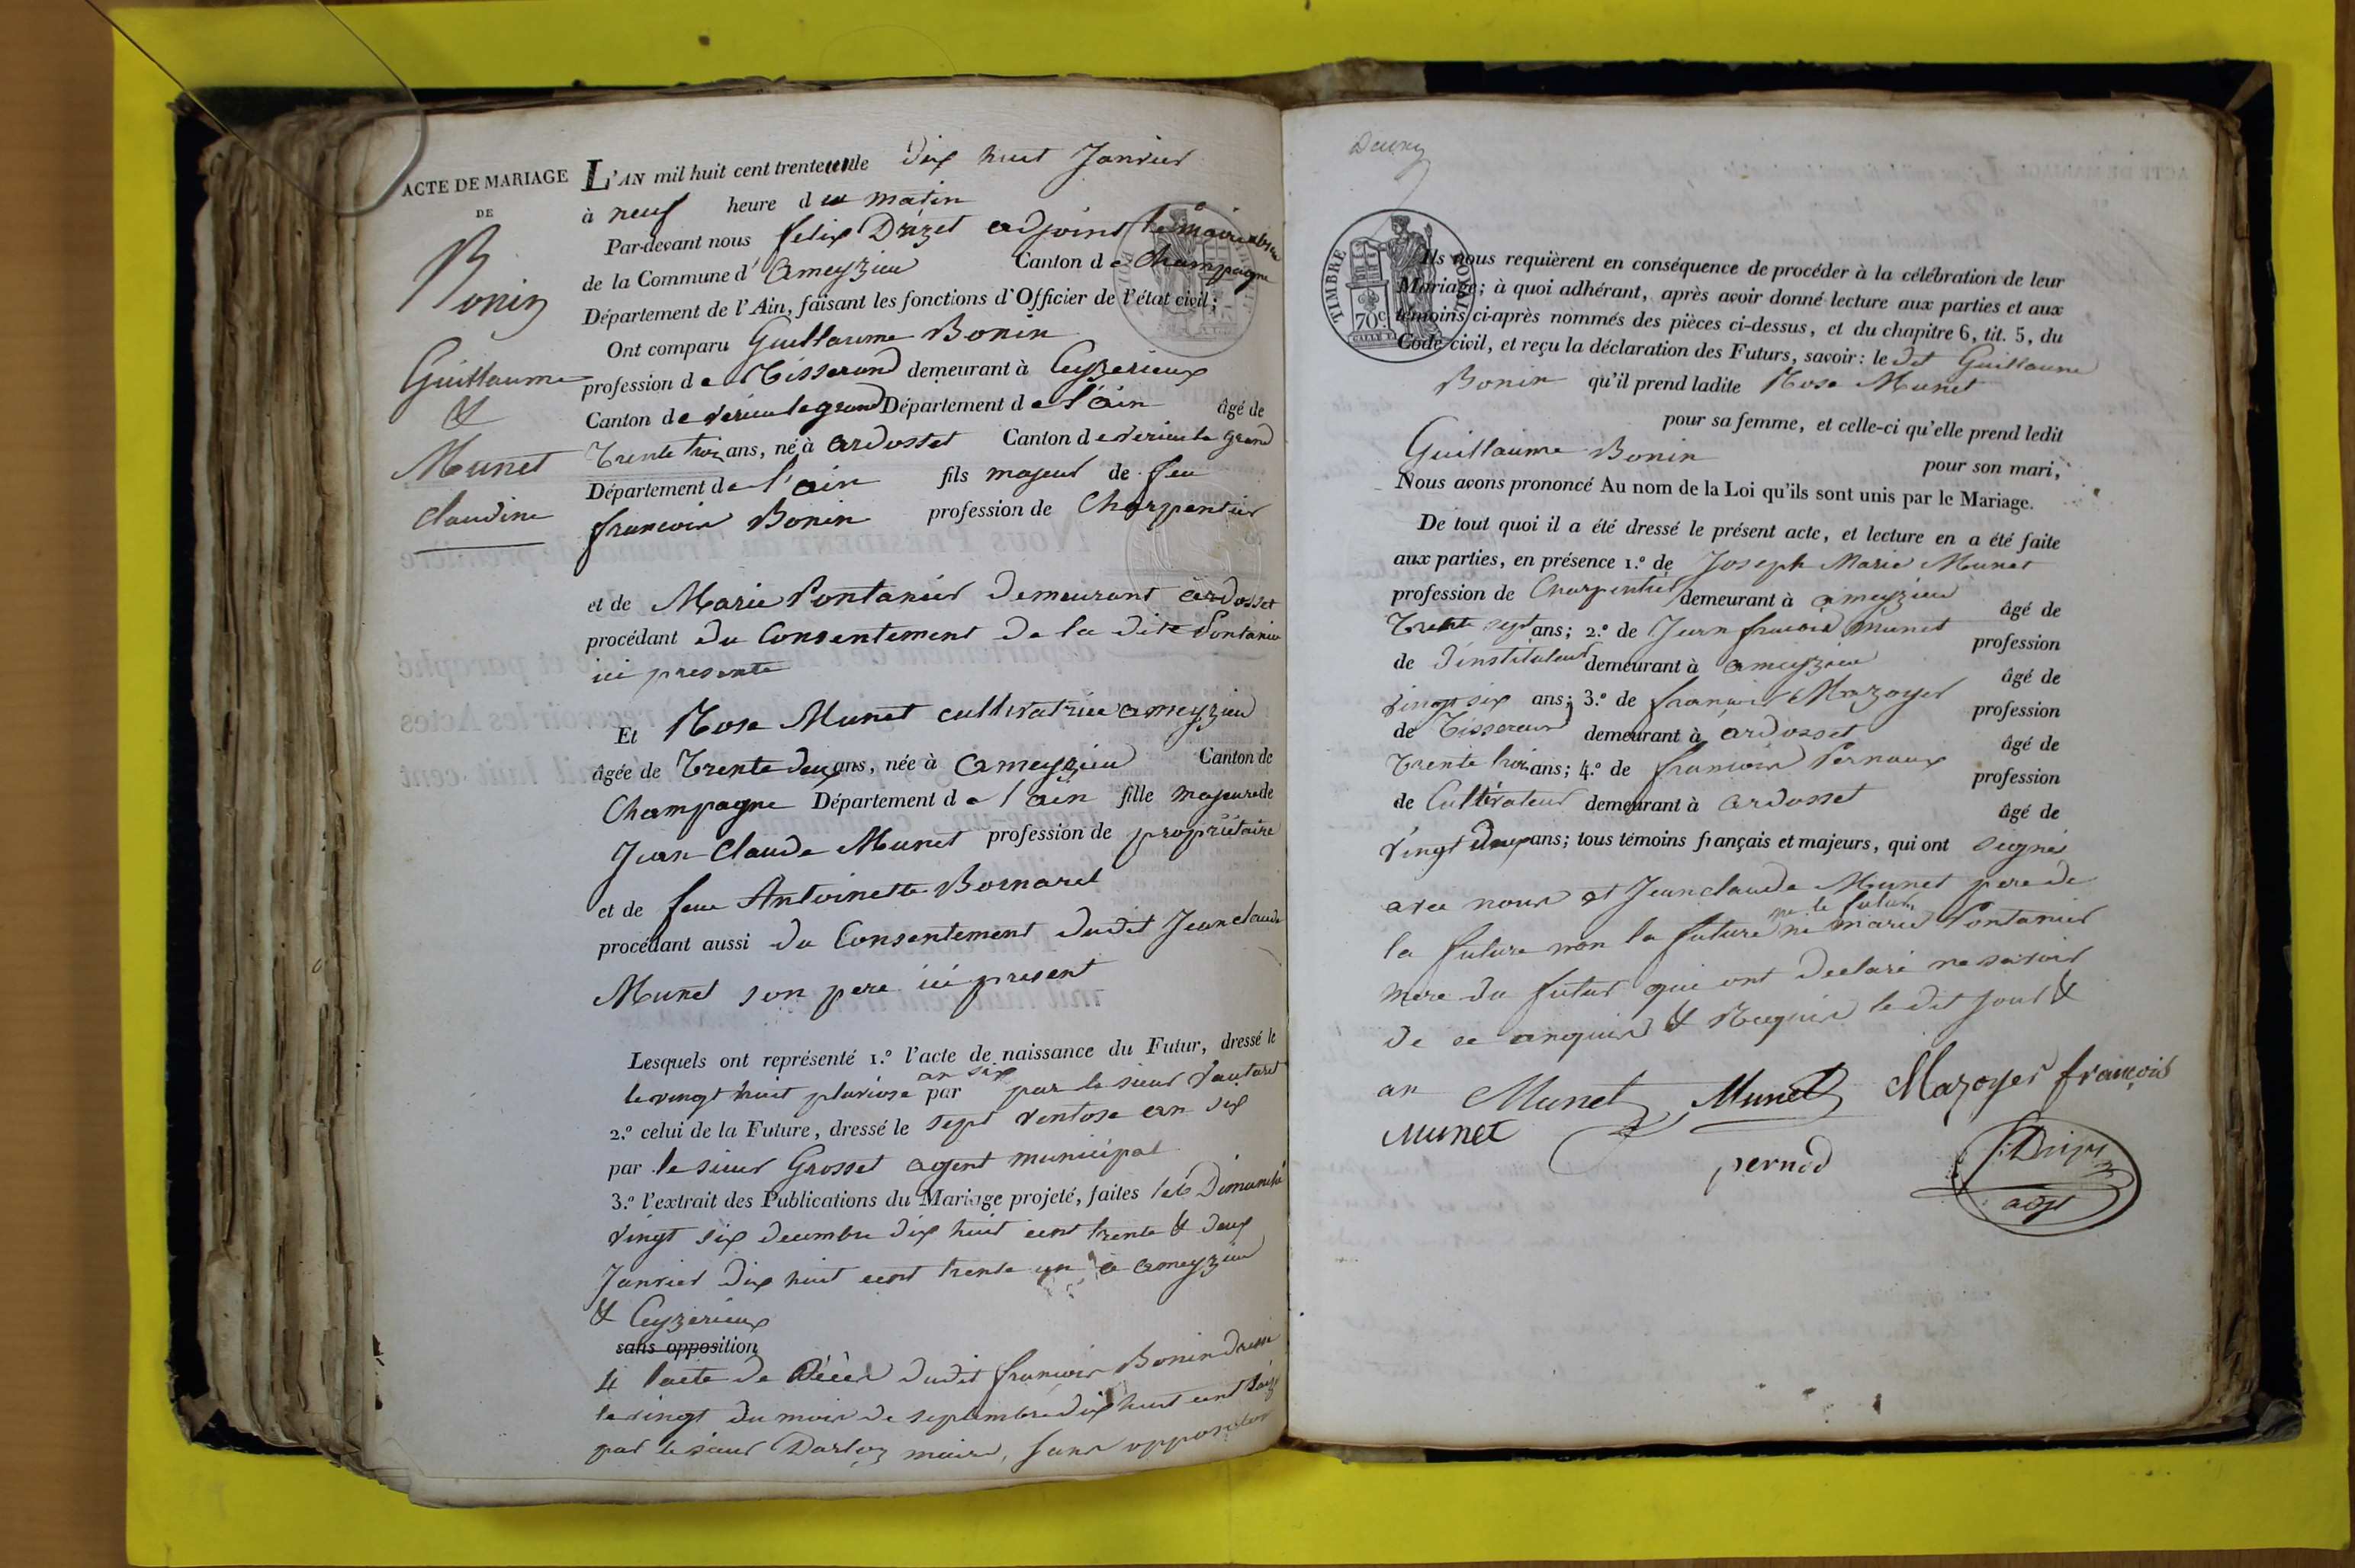 ACTE DE MARIAGE
DE
Bonin
Guillaume
&
Munet
Claudine
L'AN mil huit cent trente un le dix huit Janvier
à neuf heure du matin
Par-devant nous felix Drizet adjoint le maire absent
de la Commune d'ameyzieu Canton de Champagne
Département de l'Ain, faisant les fonctions d'Officier de l'état civil;
Ont comparu Guillaume Bonin
profession de Tisserand demeurant à Ceyzerieux
Canton de virieu le grand Département de l'ain âgé de
Trente trois ans, né à ardosset Canton de virieu le grand
Département de l'ain fils majeur de feu
francois Bonin profession de Charpentier
et de Marie Pontanier demeurant ardosset
procédant du Consentement de la dite Pontanier
ici presente
Et Rose Munet cultivatrice ameyzieu
âgée de Trente deux ans, née à ameyzieu Canton de
Champagne Département de l'ain fille majeure de
Jean Claude Munet profession de propriétaire
et de feue Antoinette Bornarel
procédant aussi du Consentement dudit Jean claude
Munet son pere ici present
Lesquels ont représenté 1.º l'acte de naissance du Futur, dressé le
le vingt huit pluviose an six par par le sieur Vautaret
2.º celui de la Future, dressé le sept ventose an six
par le sieur Grosset agent municipal
3.º l'extrait des Publications du Mariage projeté, faites les Dimanche
vingt six decembre dix huit cent trente & deux
Janvier dix huit cent trente un à ameyzieu
& Ceyzerieux
sans opposition
4 l'acte de décès dudit françois Bonin dressé
le vingt du mois de septembre dix huit cent
par le sieur Darloz maire, sans opposition
TIMBRE ROYAL
70c.
Ils nous requièrent en conséquence de procéder à la célébration de leur
Mariage; à quoi adhérant, après avoir donné lecture aux parties et aux
témoins ci-après nommés des pièces ci-dessus, et du chapitre 6, tit. 5, du
Code civil, et reçu la déclaration des Futurs, savoir: le dit Guillaume
Bonin qu'il prend ladite Rose Munet
pour sa femme, et celle-ci qu'elle prend ledit
Guillaume Bonin pour son mari,
Nous avons prononcé Au nom de la Loi qu'ils sont unis par le Mariage.
De tout quoi il a été dressé le présent acte, et lecture en a été faite
aux parties, en présence 1.º de Joseph Marie Munet
profession de Charpentier demeurant à ameyzieu âgé de
Trente sept ans; 2.º de Jean francois Munet profession
de d'instituteur demeurant à ameyzieu âgé de
vingt six ans; 3.º de francois Mazoyer profession
de Tisserand demeurant à ardosset âgé de
Trente trois ans; 4.º de francois Pernoux profession
de Cultivateur demeurant à ardosset âgé de
vingt deux ans; tous témoins français et majeurs, qui ont signés
avec nous et Jean claude Munet pere de
la future non la future ni le futur ni marie Pontanier
mere du futur qui ont declaré ne savoir
de ce enquis & Requis le dit jour &
an Munet Munet Mazoyer françois
Munet pernod Drizet
adjt